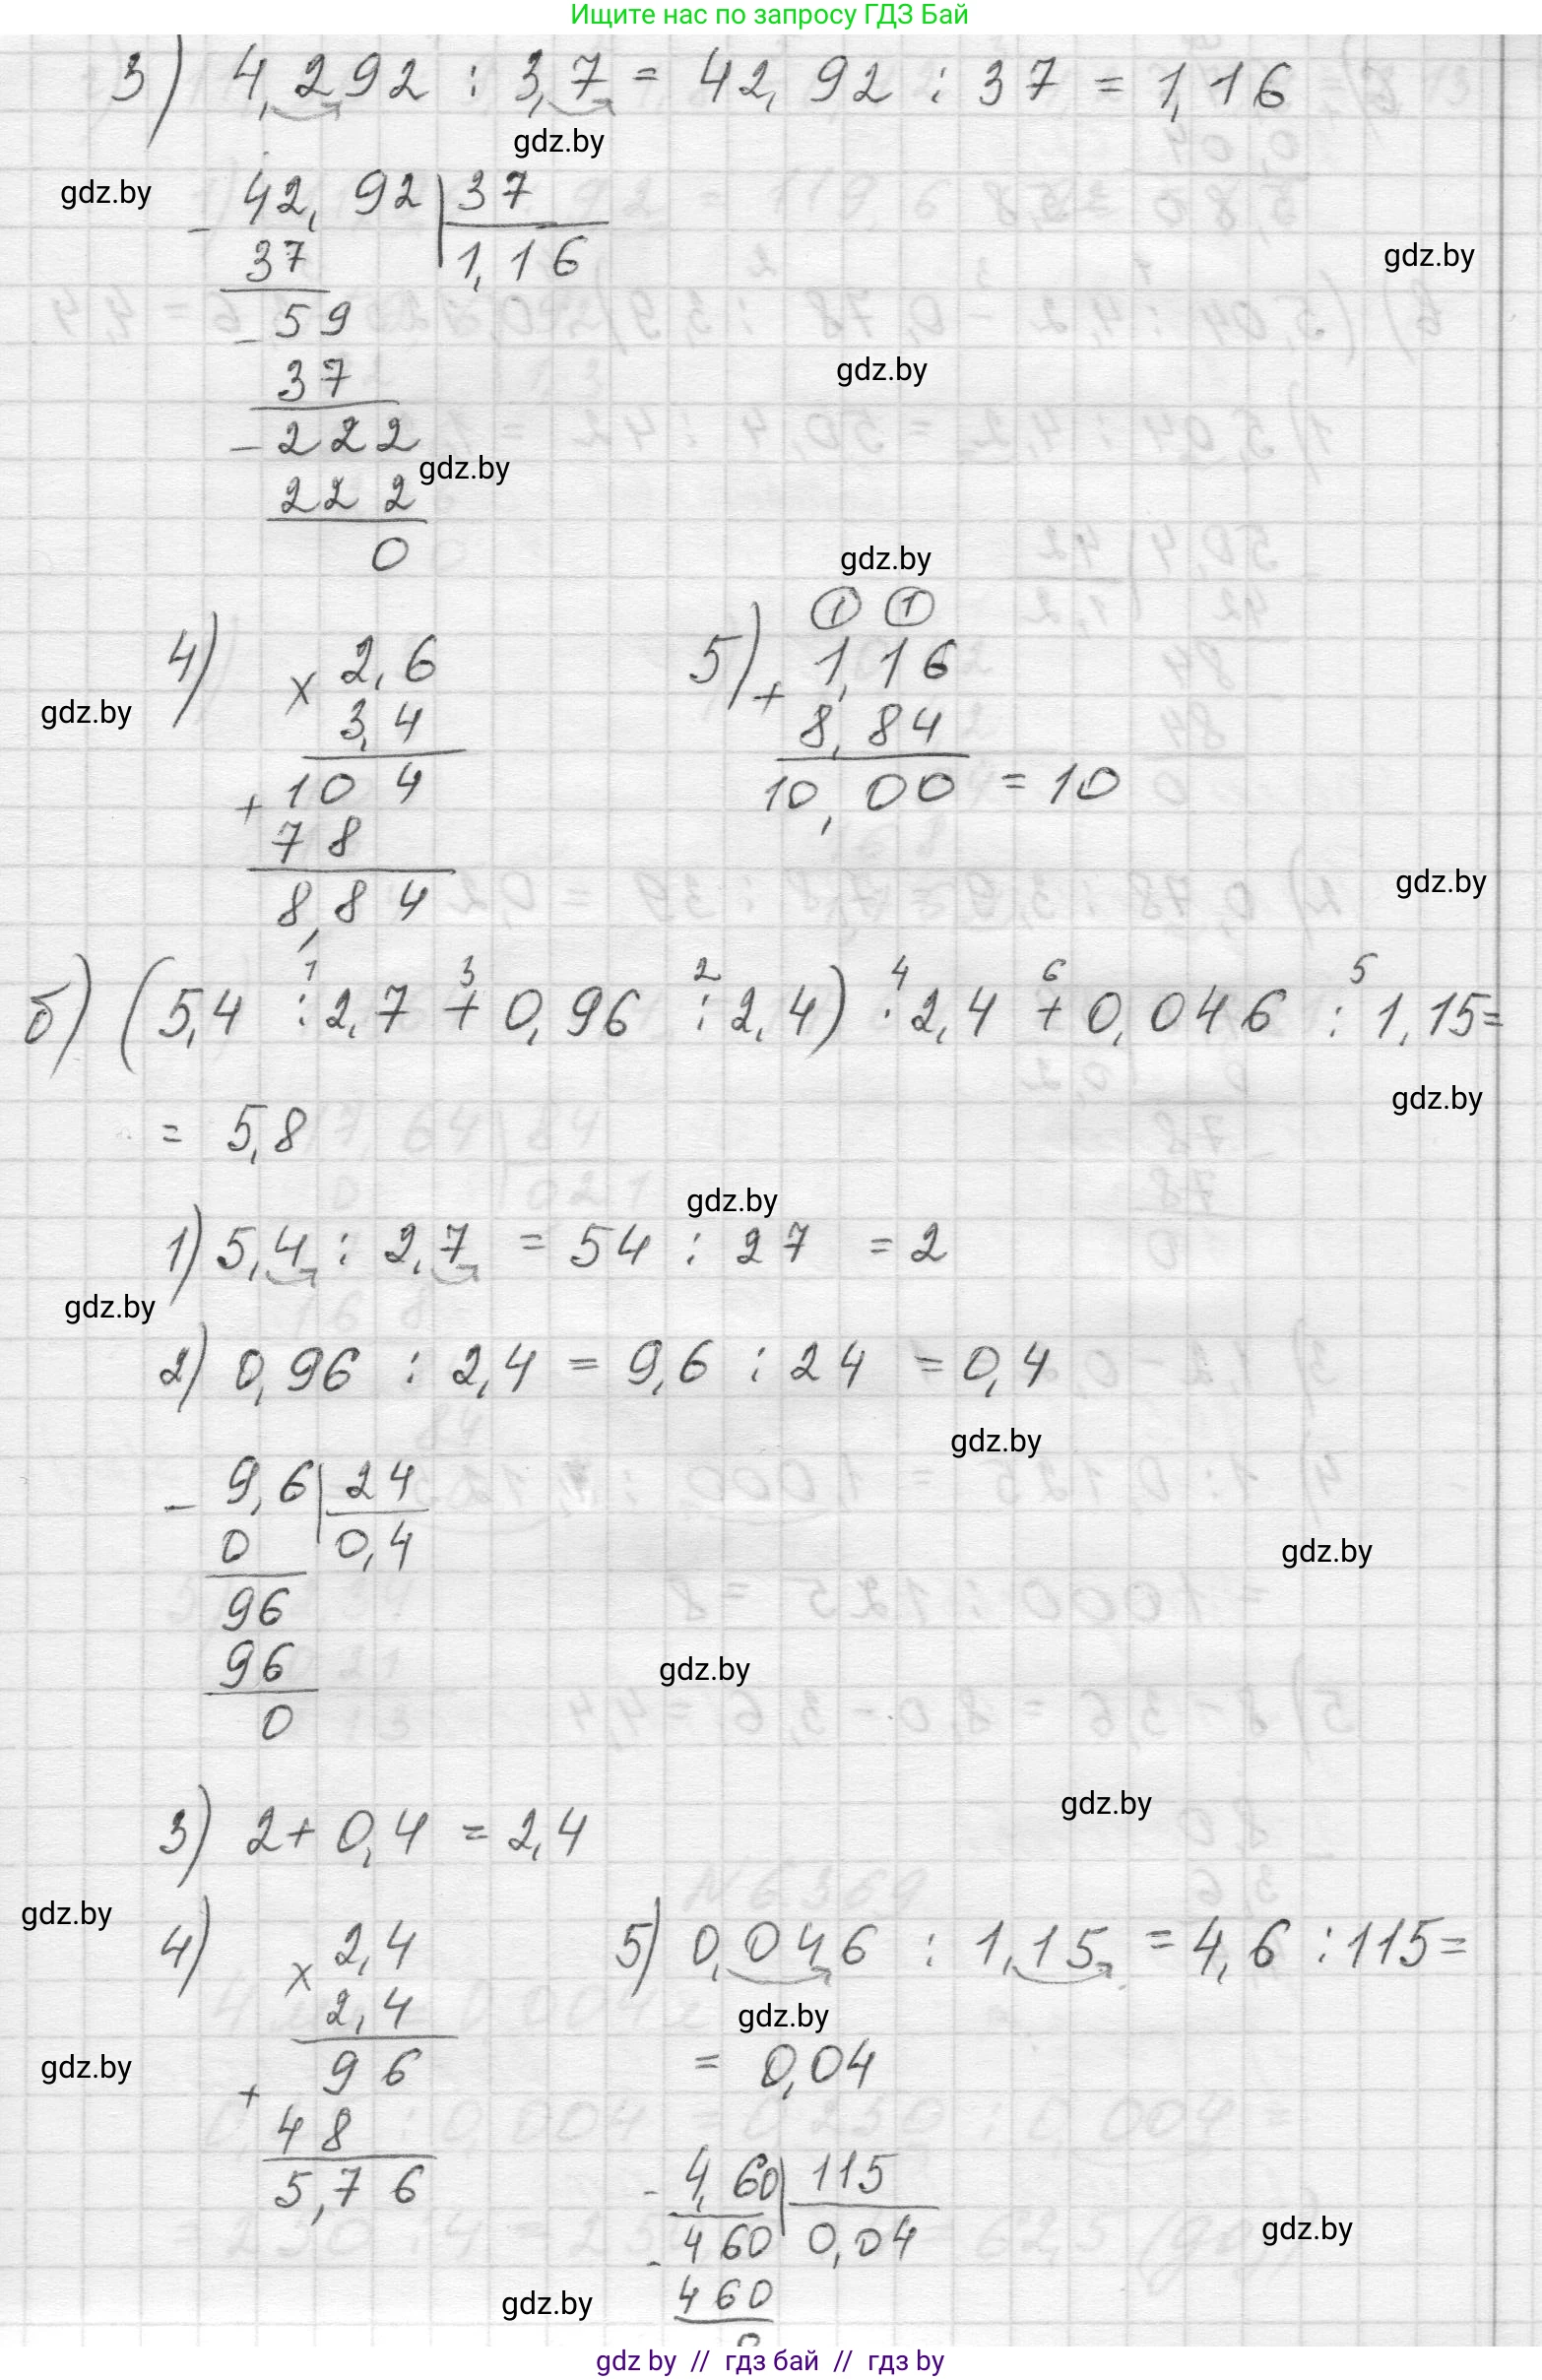 Ищите нас по запросу ГДЗ Бай
3) 4,292 : 3,7 = 42,92 : 37 = 1,16
gdz.by
gdz.by
- 42,92 | 37
37 | 1,16
gdz.by
- 59
37
gdz.by
- 222
gdz.by
222
0
gdz.by
4) × 2,6
3,4
+ 104
78
8,84
gdz.by
① ①
5) + 1,16
8,84
10,00 = 10
gdz.by
1 3 2 4 6 5
б) (5,4 : 2,7 + 0,96 : 2,4) · 2,4 + 0,046 : 1,15 =
gdz.by
= 5,8
gdz.by
1) 5,4 : 2,7 = 54 : 27 = 2
gdz.by
2) 0,96 : 2,4 = 9,6 : 24 = 0,4
gdz.by
- 9,6 | 24
0 | 0,4
gdz.by
96
96
gdz.by
0
gdz.by
3) 2 + 0,4 = 2,4
gdz.by
4) × 2,4
2,4
96
+ 48
5,76
gdz.by
5) 0,046 : 1,15 = 4,6 : 115 =
gdz.by
= 0,04
- 4,60 | 115
- 460 | 0,04
gdz.by
460
gdz.by
0
gdz by // гдз бай // гдз by